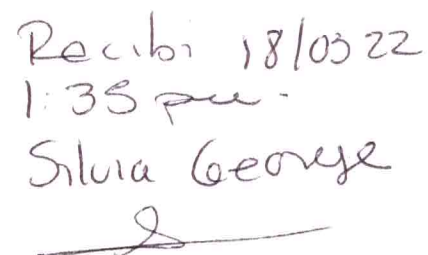 Recibi 18/03 22
1:35 pm.
Silvia George